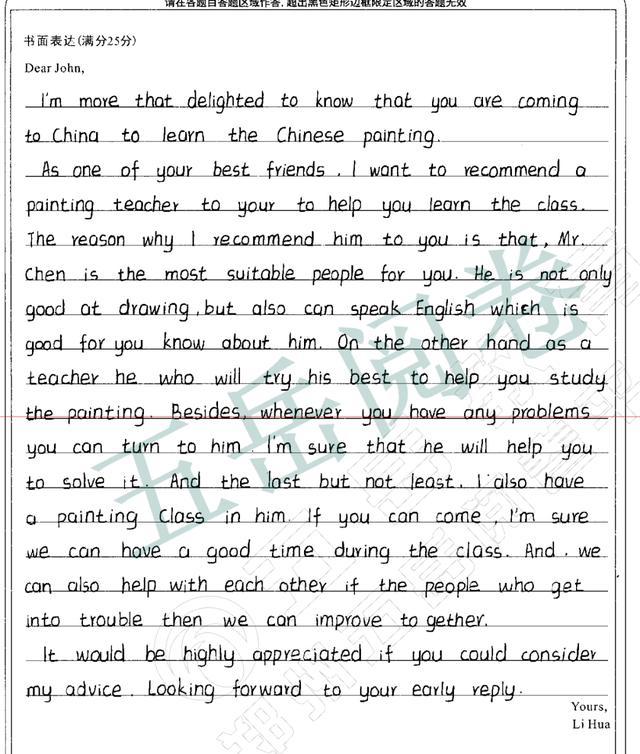 请在各题目答题区域作答,超出黑色矩形边框限定区域的答题无效
书面表达(满分25分)
Dear John,
I'm more that delighted to know that you are coming
to China to learn the Chinese painting.
As one of your best friends, I want to recommend a
painting teacher to your to help you learn the class.
The reason why I recommend him to you is that, Mr.
Chen is the most suitable people for you. He is not only
good at drawing, but also can speak English which is
good for you know about him. On the other hand as a
teacher he who will try his best to help you study
the painting. Besides, whenever you have any problems
you can turn to him. I'm sure that he will help you
to solve it. And the last but not least, I also have
a painting Class in him. If you can come, I'm sure
we can have a good time during the class. And, we
can also help with each other if the people who get
into trouble then we can improve to gether.
It would be highly appreciated if you could consider
my advice. Looking forward to your early reply.
Yours,
Li Hua
五岳阅卷